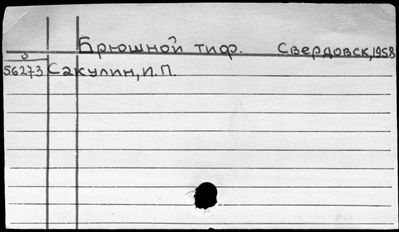 Брюшной тиф. Свердовск, 1958
О
56273 Сакулин, И.П.